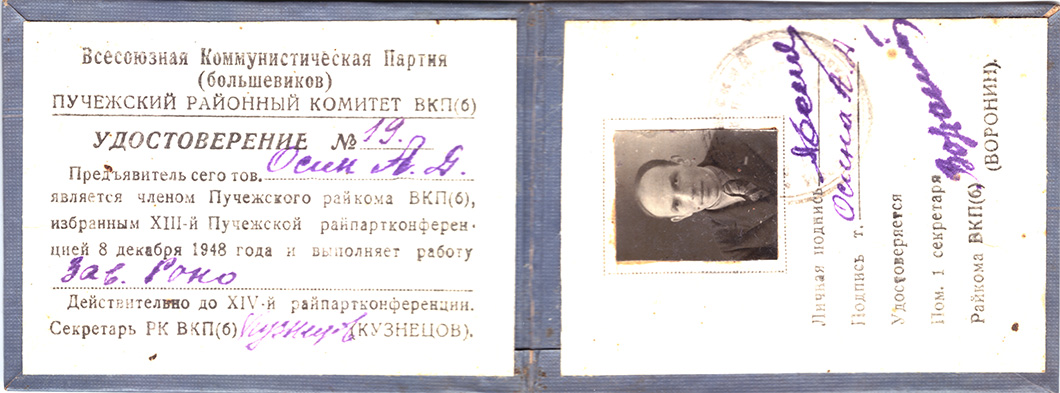 Всесоюзная Коммунистическая Партия
(большевиков)
ПУЧЕЖСКИЙ РАЙОННЫЙ КОМИТЕТ ВКП(б)
УДОСТОВЕРЕНИЕ № 19.
Предъявитель сего тов. Осин А. Д.
является членом Пучежского райкома ВКП(б),
избранным XIII-й Пучежской райпартконферен-
цией 8 декабря 1948 года и выполняет работу
Зав. Роно
Действительно до XIV-й райпартконференции.
Секретарь РК ВКП(б) Кузнецов (КУЗНЕЦОВ).
Личная подпись
Подпись т. Осина А. Д.
Удостоверяется
Пом. 1 секретаря
Райкома ВКП(б) (ВОРОНИН).